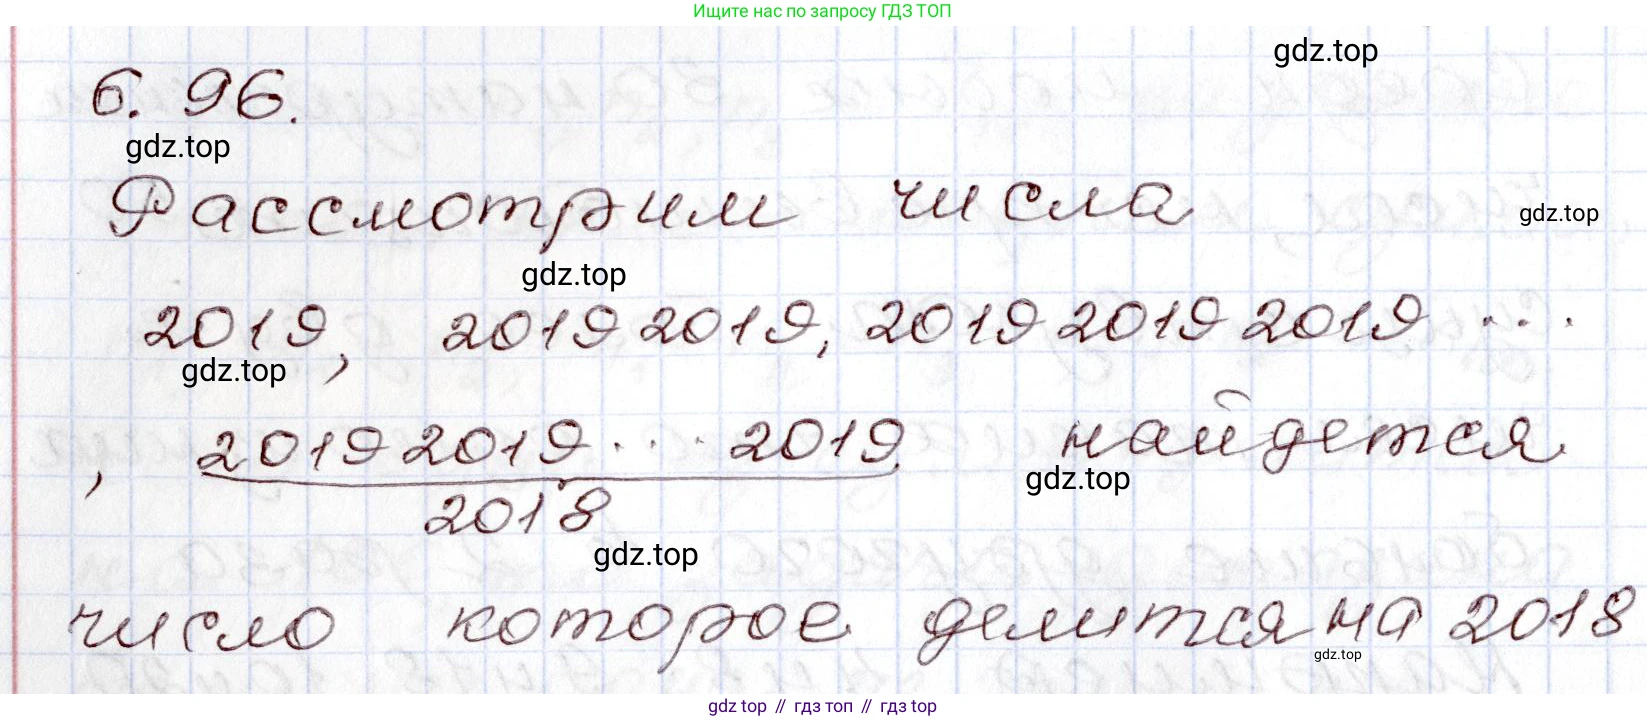 Ищите нас по запросу ГДЗ ТОП
gdz.top
6.96.
gdz.top
Рассмотрим числа
gdz.top
gdz.top
2019, 20192019, 201920192019 ...
gdz.top
, 20192019...2019 найдется
gdz.top
2018
gdz.top
число которое делится на 2018
gdz.top
gdz top // гдз топ // гдз top